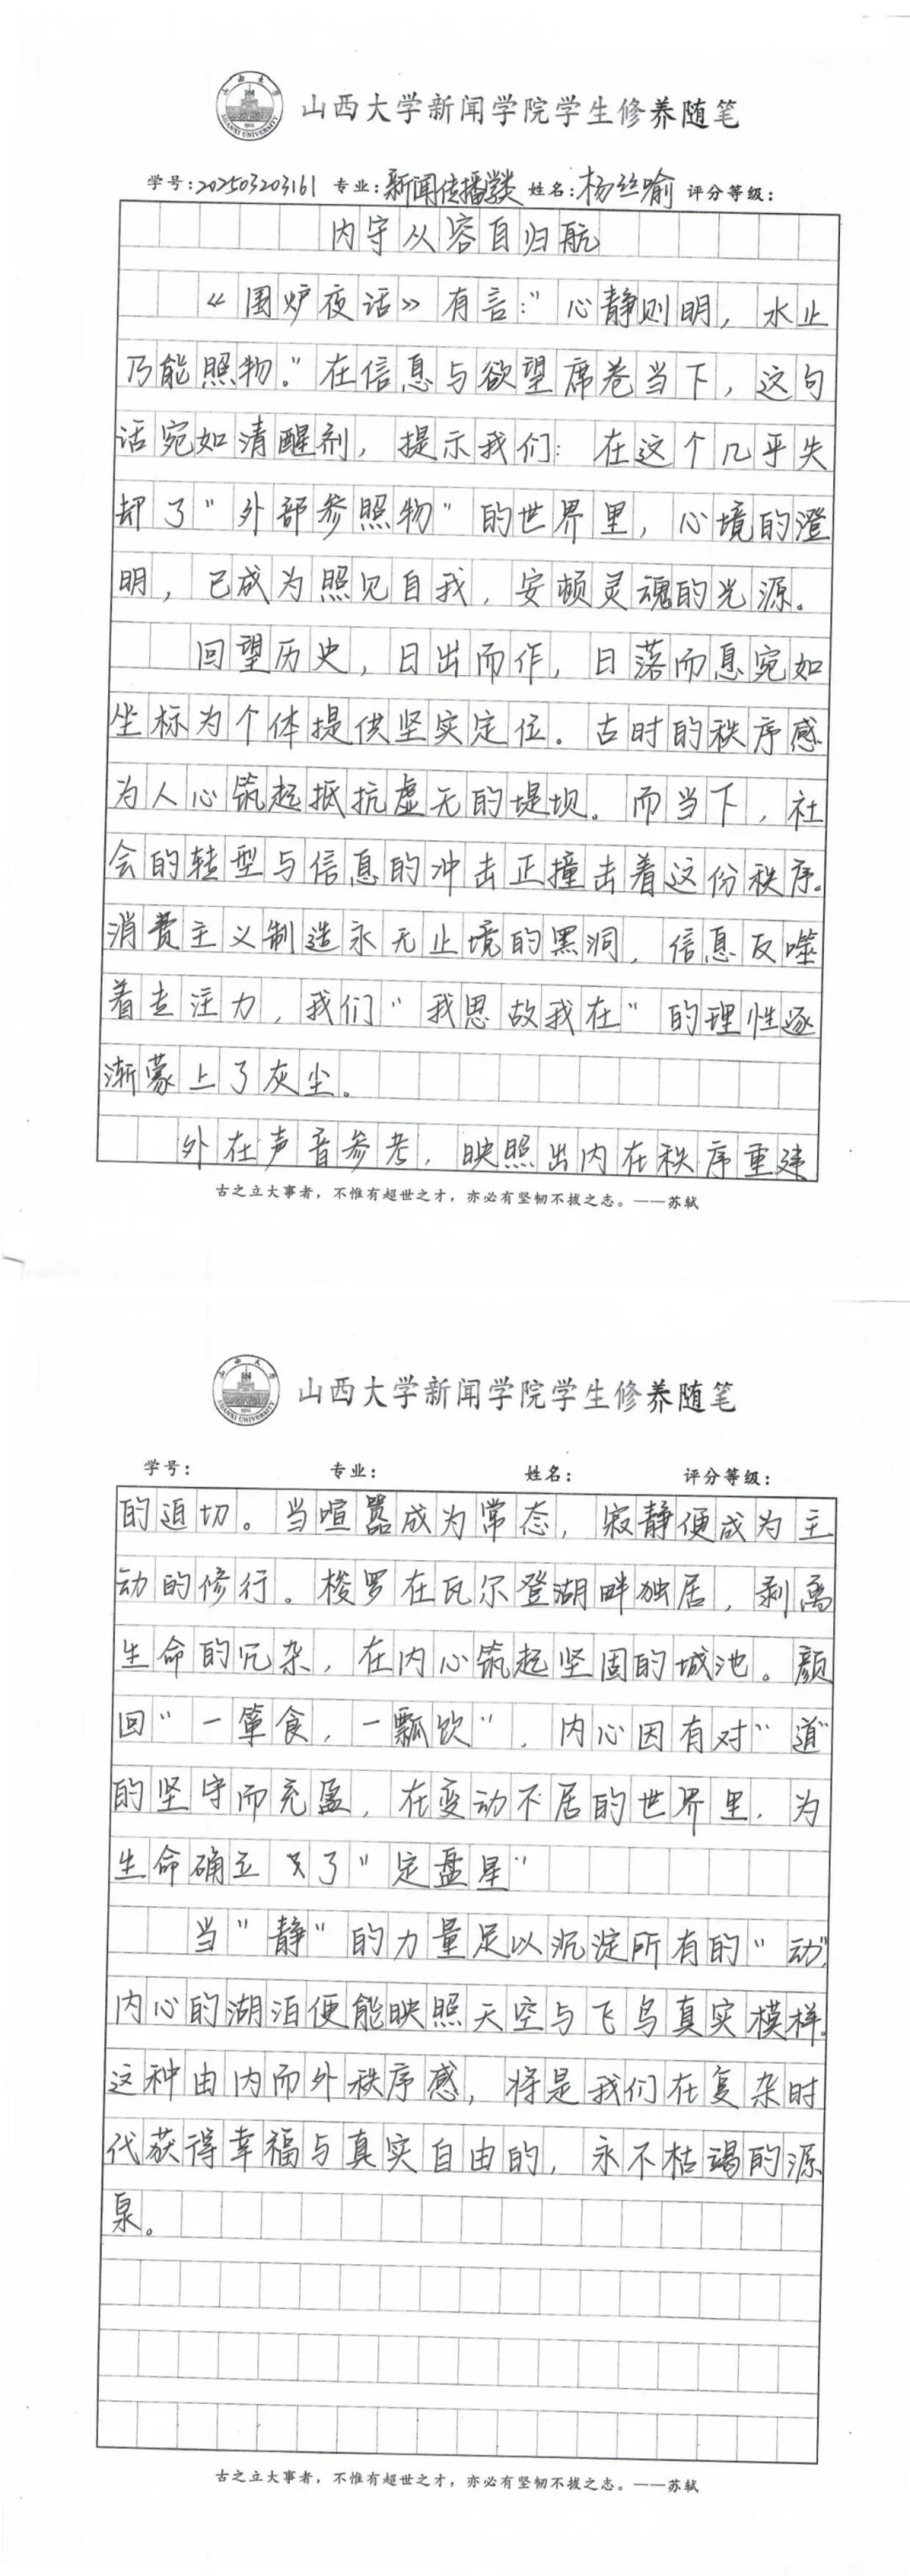 山西大学
SHANXI UNIVERSITY
山西大学新闻学院学生修养随笔
学号:202503203161 专业:新闻传播学类 姓名:杨丝喻 评分等级:
内守从容自归航
《围炉夜话》有言:“心静则明,水止
乃能照物。”在信息与欲望席卷当下,这句
话宛如清醒剂,提示我们:在这个几乎失
却了“外部参照物”的世界里,心境的澄
明,已成为照见自我,安顿灵魂的光源。
回望历史,日出而作,日落而息宛如
坐标为个体提供坚实定位。古时的秩序感
为人心筑起抵抗虚无的堤坝。而当下,社
会的转型与信息的冲击正撞击着这份秩序。
消费主义制造永无止境的黑洞,信息反噬
着专注力,我们“我思故我在”的理性逐
渐蒙上了灰尘。
外在声音参考,映照出内在秩序重建
古之立大事者,不惟有超世之才,亦必有坚韧不拔之志。——苏轼
山西大学
SHANXI UNIVERSITY
山西大学新闻学院学生修养随笔
学号: 专业: 姓名: 评分等级:
的迫切。当喧嚣成为常态,寂静便成为主
动的修行。梭罗在瓦尔登湖畔独居,剥离
生命的冗杂,在内心筑起坚固的城池。颜
回“一箪食,一瓢饮”,内心因有对“道”
的坚守而充盈,在变动不居的世界里,为
生命确立了“定盘星”
当“静”的力量足以沉淀所有的“动”,
内心的湖泊便能映照天空与飞鸟真实模样。
这种由内而外秩序感,将是我们在复杂时
代获得幸福与真实自由的,永不枯竭的源
泉。
古之立大事者,不惟有超世之才,亦必有坚韧不拔之志。——苏轼